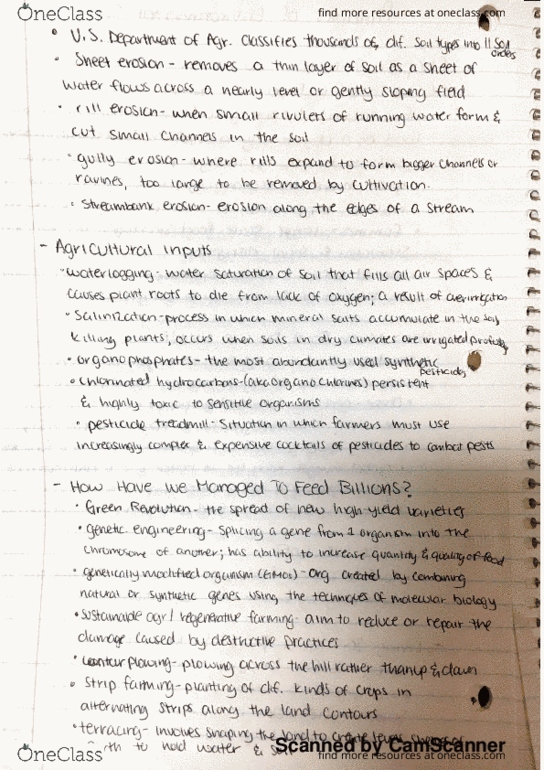 OneClass
find more resources at oneclass.com
• U.S. Department of Agr. Classifies thousands of dif. soil types into 11 soil
orders
• Sheet erosion - removes a thin layer of soil as a sheet of
water flows across a nearly level or gently sloping field
• rill erosion - when small rivulets of running water form &
cut small channels in the soil
• gully erosion - where rills expand to form bigger channels or
ravines, too large to be removed by cultivation.
• Streambank erosion - erosion along the edges of a stream
- Agricultural Inputs
• waterlogging - water saturation of soil that fills all air spaces &
causes plant roots to die from lack of oxygen; a result of overirrigation
• Salinization - process in which mineral salts accumulate in the soil,
killing plants; occurs when soils in dry climates are irrigated profusely
• organophosphates - the most abundantly used synthetic
pesticides
• chlorinated hydrocarbons - (aka organochlorines) persistent
& highly toxic to sensitive organisms
• pesticide treadmill - Situation in which farmers must use
increasingly complex & expensive cocktails of pesticides to combat pests
- How Have We Managed To Feed Billions?
• Green Revolution - the spread of new high-yield varieties
• genetic engineering - splicing a gene from 1 organism into the
chromosome of another; has ability to increase quantity & quality of food
• genetically modified organism (GMOs) - org. created by combining
natural or synthetic genes using the techniques of molecular biology
• sustainable agr / regenerative farming - aim to reduce or repair the
damage caused by destructive practices
• contour plowing - plowing across the hill rather than up & down
• Strip farming - planting of dif. kinds of crops in
alternating strips along the land contours
• terracing - involves shaping the land to create level shelves of
earth to hold water & soil
Scanned by CamScanner
OneClass
find more resources at oneclass.com